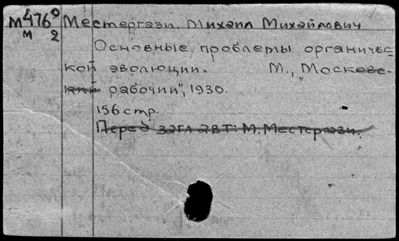 М476⁰ Местергази, Михаил Михайлович
М 2
Основные проблемы органичес-
кой эволюции. М., "Московс-
кий рабочий", 1930.
156 стр.
Перед загл. авт: М. Местергази.